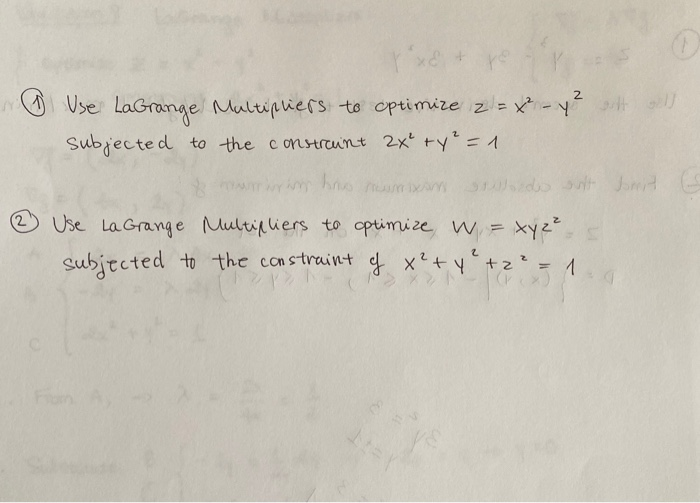 ① Use LaGrange Multipliers to optimize z = x² - y²
Subjected to the constraint 2x² + y² = 1
② Use LaGrange Multipliers to optimize W = xyz²
subjected to the constraint of x² + y² + z² = 1